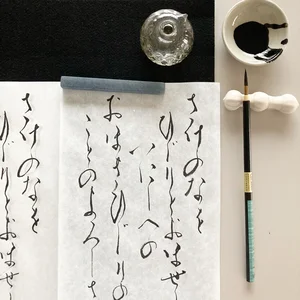 さけのなを
ひじりとおほせ
いにしへの
おほきひじりの
ことのよろしさ
さけのなを
ひじりとおほせ